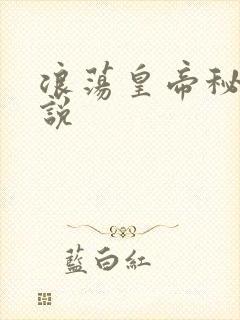 浪蕩皇帝秘
說
藍白紅